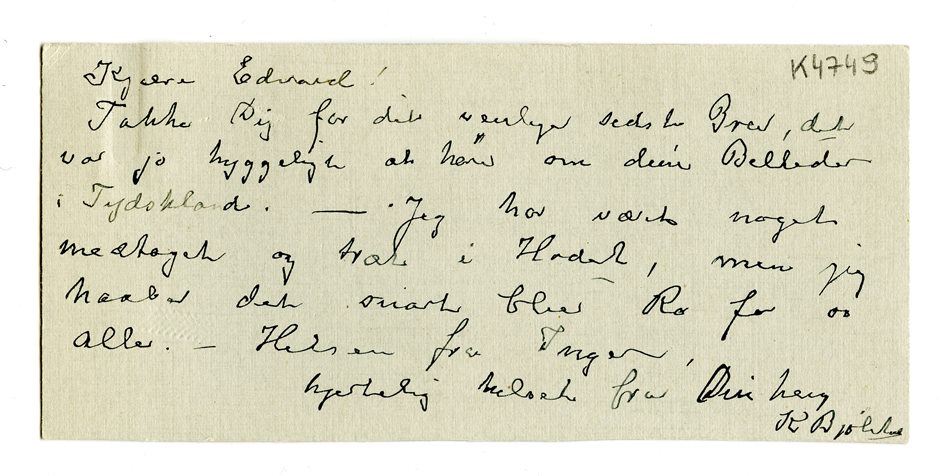 K4749
Kjære Edvard!
Takke Dig for dit venlige sidste Brev, det
var jo hyggeligt at høre om dine Billeder
i Tydskland. — Jeg har vært noget
medtaget og træt i Hodet, men jeg
haaber det snart blir Ro for os
alle. — Hilsen fra Inger,
hjertelig hilset fra Din heng
K Bjølstad